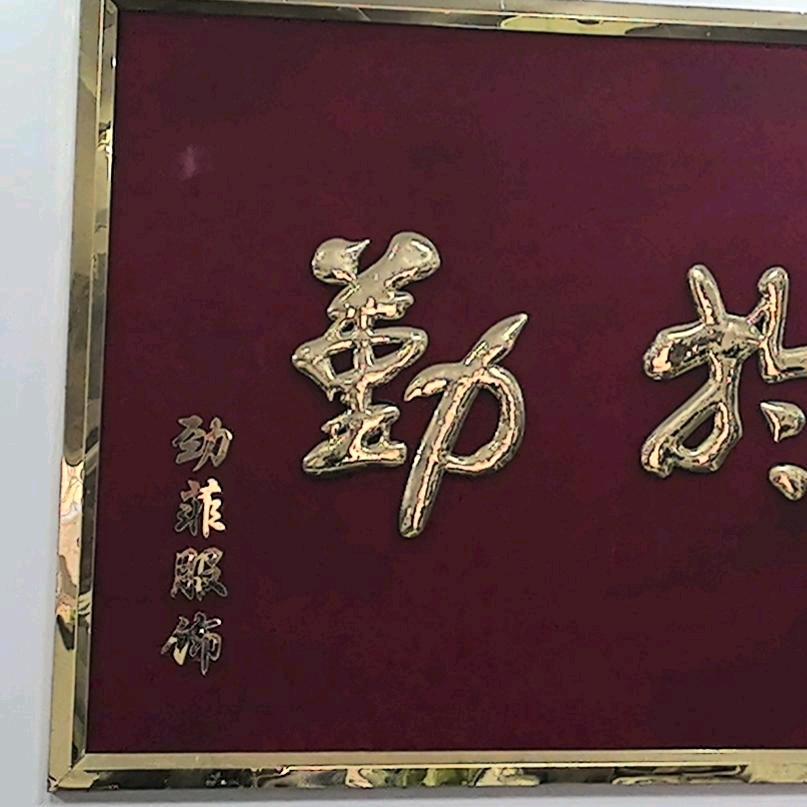 勤
於
劲菲服饰